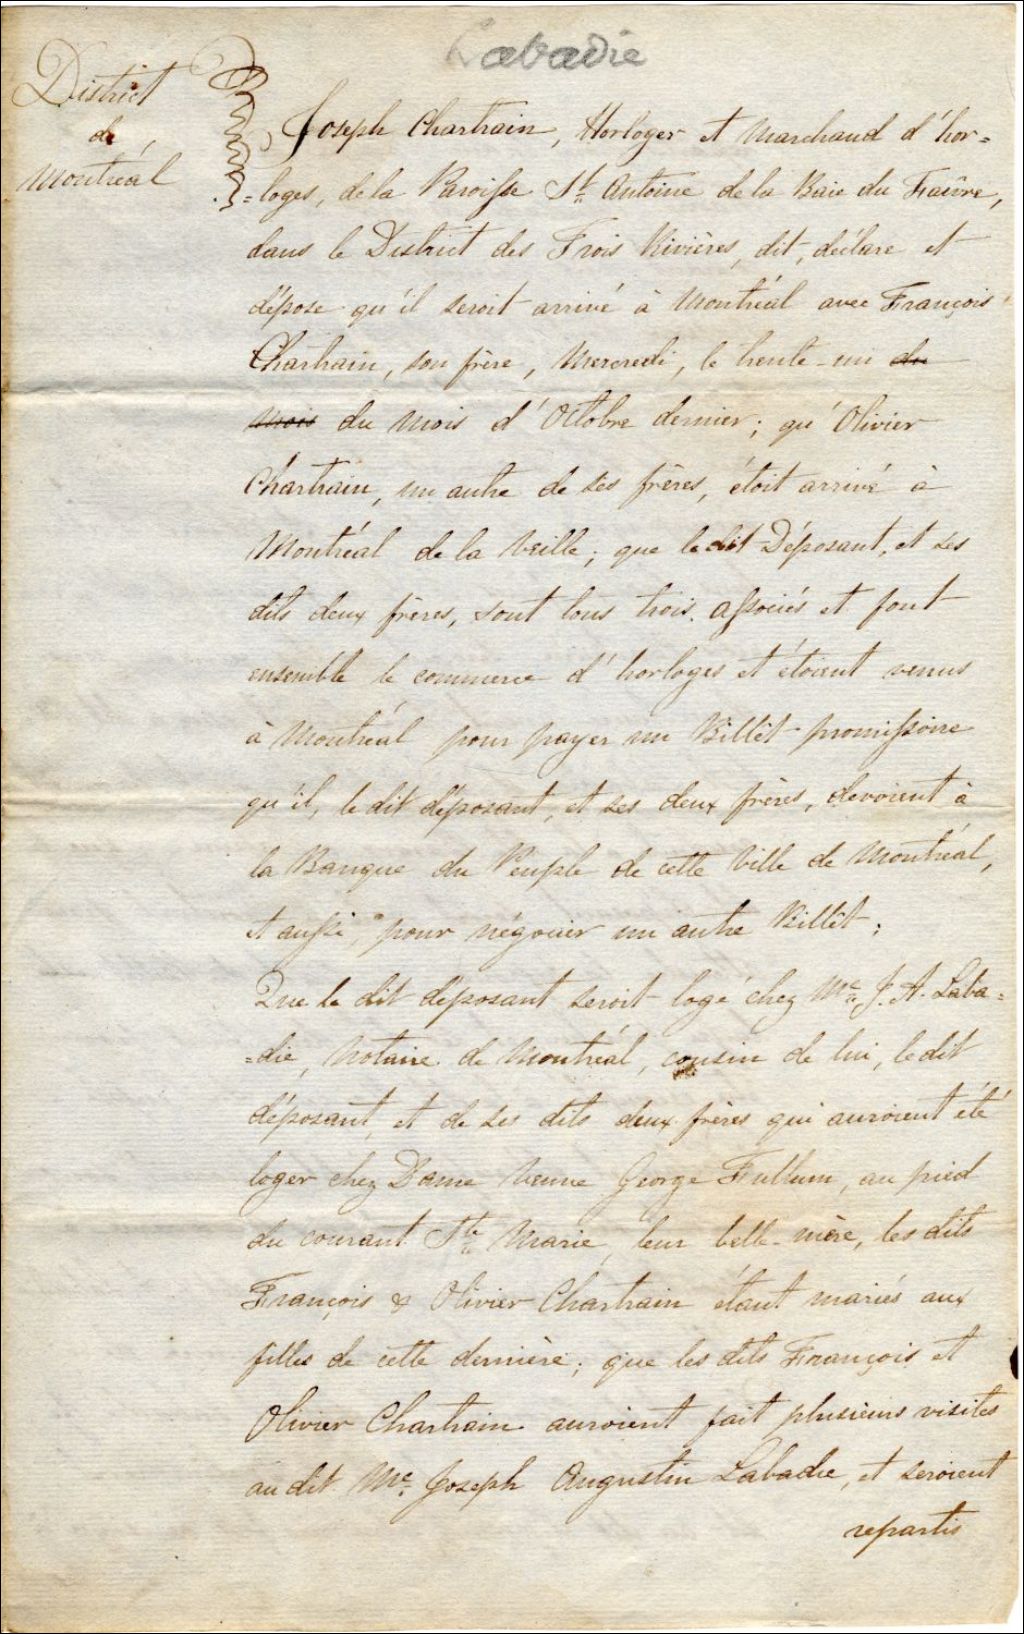 Labadie
District
de
Montréal
Joseph Chartrain, Horloger et Marchand d'hor=
=loges, de la Paroisse St. Antoine de la Baie du Faivre,
dans le District des Trois Rivières, dit, déclare et
dépose qu'il seroit arrivé à Montréal avec François
Chartrain, son frère, Mercredi, le trente-un du
mois du mois d'Octobre dernier; qu'Olivier
Chartrain, un autre de ses frères, étoit arrivé à
Montréal de la veille; que le dit Déposant, et ses
dits deux frères, sont tous trois associés et font
ensemble le commerce d'horloges et étoient venus
à Montréal pour payer un Billêt promissoire
qu'il, le dit déposant, et ses deux frères, devoient à
la Banque du Peuple de cette Ville de Montréal,
et aussi pour négocier un autre Billêt;
Que le dit déposant seroit logé chez Mre. J. A. Laba=
=die, Notaire de Montréal, cousin de lui, le dit
déposant, et de ses dits deux frères qui auroient été
loger chez Dame Veuve George Fullum, au pied
du courant Ste. Marie, leur belle-mère, les dits
François & Olivier Chartrain étant mariés aux
filles de cette dernière; que les dits François et
Olivier Chartrain auroient fait plusieurs visites
au dit Mre. Joseph Augustin Labadie, et seroient
repartis